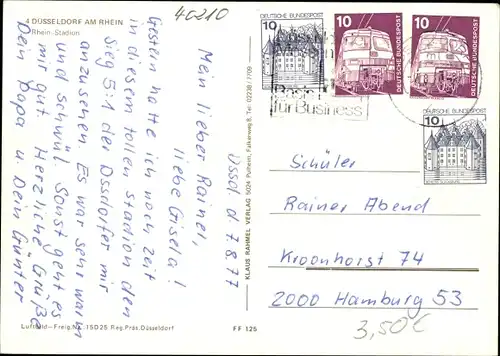 4 DÜSSELDORF AM RHEIN
Rhein-Stadion
40210
Düssd. d. 7.8.77
Mein lieber Rainer,
liebe Gisela!
Gestern hatte ich noch Zeit
in diesem tollen Stadion den
Sieg 5:1 der Dssdorfer mir
anzusehen. Es war sehr warm
und schwül. Sonst geht es
mir gut. Herzliche Grüße
Dein Papa u Dein Günter
KLAUS RAHMEL VERLAG 5024 Pulheim, Falkenweg 8, Tel. 02238/7709
10
DEUTSCHE BUNDESPOST
10
DEUTSCHE BUNDESPOST
10
DEUTSCHE BUNDESPOST
DEUTSCHE BUNDESPOST
10
Basis
für Business
Schüler
Rainer Abend
Kroonhorst 74
2000 Hamburg 53
3,50€
Luftbild-Freig. Nr. 15D25 Reg. Präs. Düsseldorf
FF 125